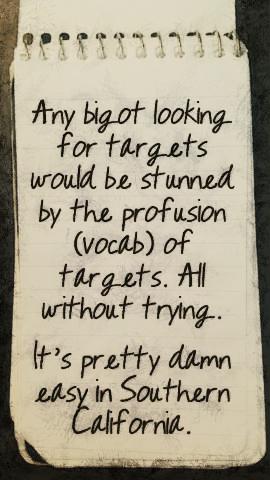 Any bigot looking
for targets
would be stunned
by the profusion
(vocab) of
targets. All
without trying.
It's pretty damn
easy in Southern
California.